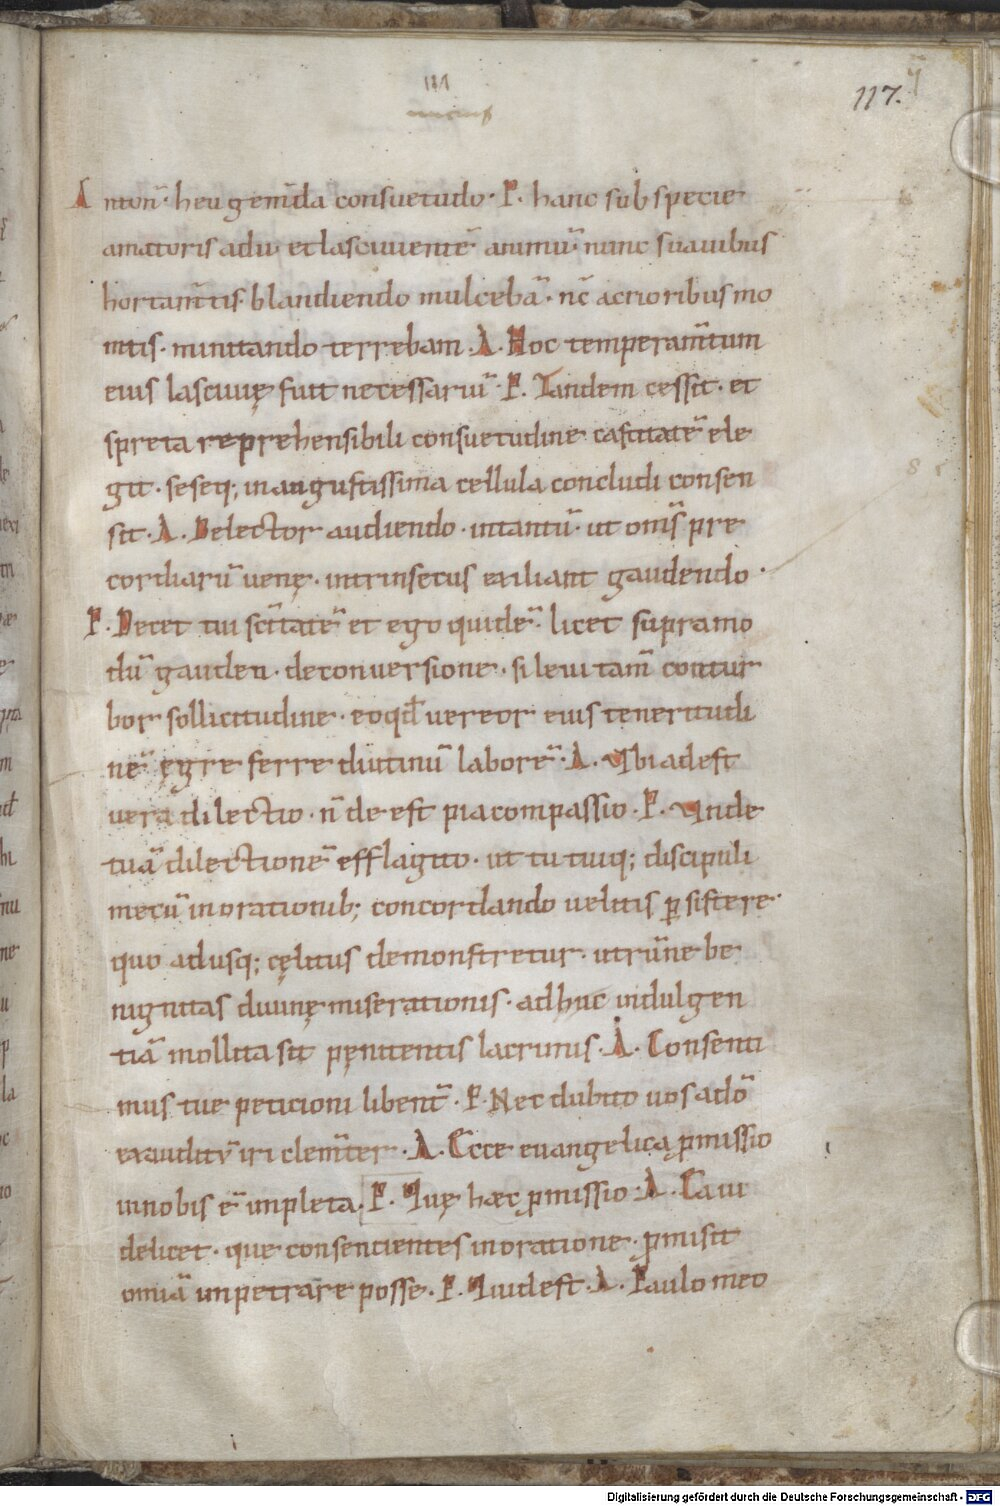 117.
Anton̄· heu gem̄da consuetudo· P. hanc sub specie
amatoris adiv et lasciuientē animū nunc suauibus
hortam̄tis· blandiendo mulcebā· nc̄ acrioribus mo
nitis· minitando terrebam· A. Hoc temperam̄tum
eius lasciuię fuit necessariū· P. Tandem cessit· et
spreta reprehensibili consuetudine castitatē ele
git· seseq; in angustissima cellula concludi consen
sit· A. Delector audiendo· intantū· ut om̄s pre
cordiarū uenę· intrinsecus exiliant gaudendo·
P. Decet tui sc̄itatē et ego quidē· licet supramo
dū gauden· deconuersione· si leui tam̄ contur
bor sollicitudine· eoqđ uereor eius teneritudi
nē ęgre ferre diutinū laborē· A. Vbi adest
uera dilectio· n̄ de est pia compassio· P. Vnde
tuā dilectionē efflagito· ut tu tuiq; discipuli
mecū in orationib; concordando uelitis ꝑsistere·
quo adusq; cęlitus demonstretur· utrūne be
nignitas diuinę miserationis· adhuc indulgen
tiā mollita sit pęnitentis lacrimis· A. Consenti
mus tue peticioni libent̄· P. Nec dubito uos adō
exauditv̄ iri clem̄ter· A. Ecce euangelica ꝓmissio
in nobis ē impleta. P. Quę hæc ꝓmissio· A. Ea ui
delicet· que consencientes in oratione· ꝓmisit
omiā impetrare posse· P. Quid est· A. Paulo meo
Digitalisierung gefördert durch die Deutsche Forschungsgemeinschaft - DFG